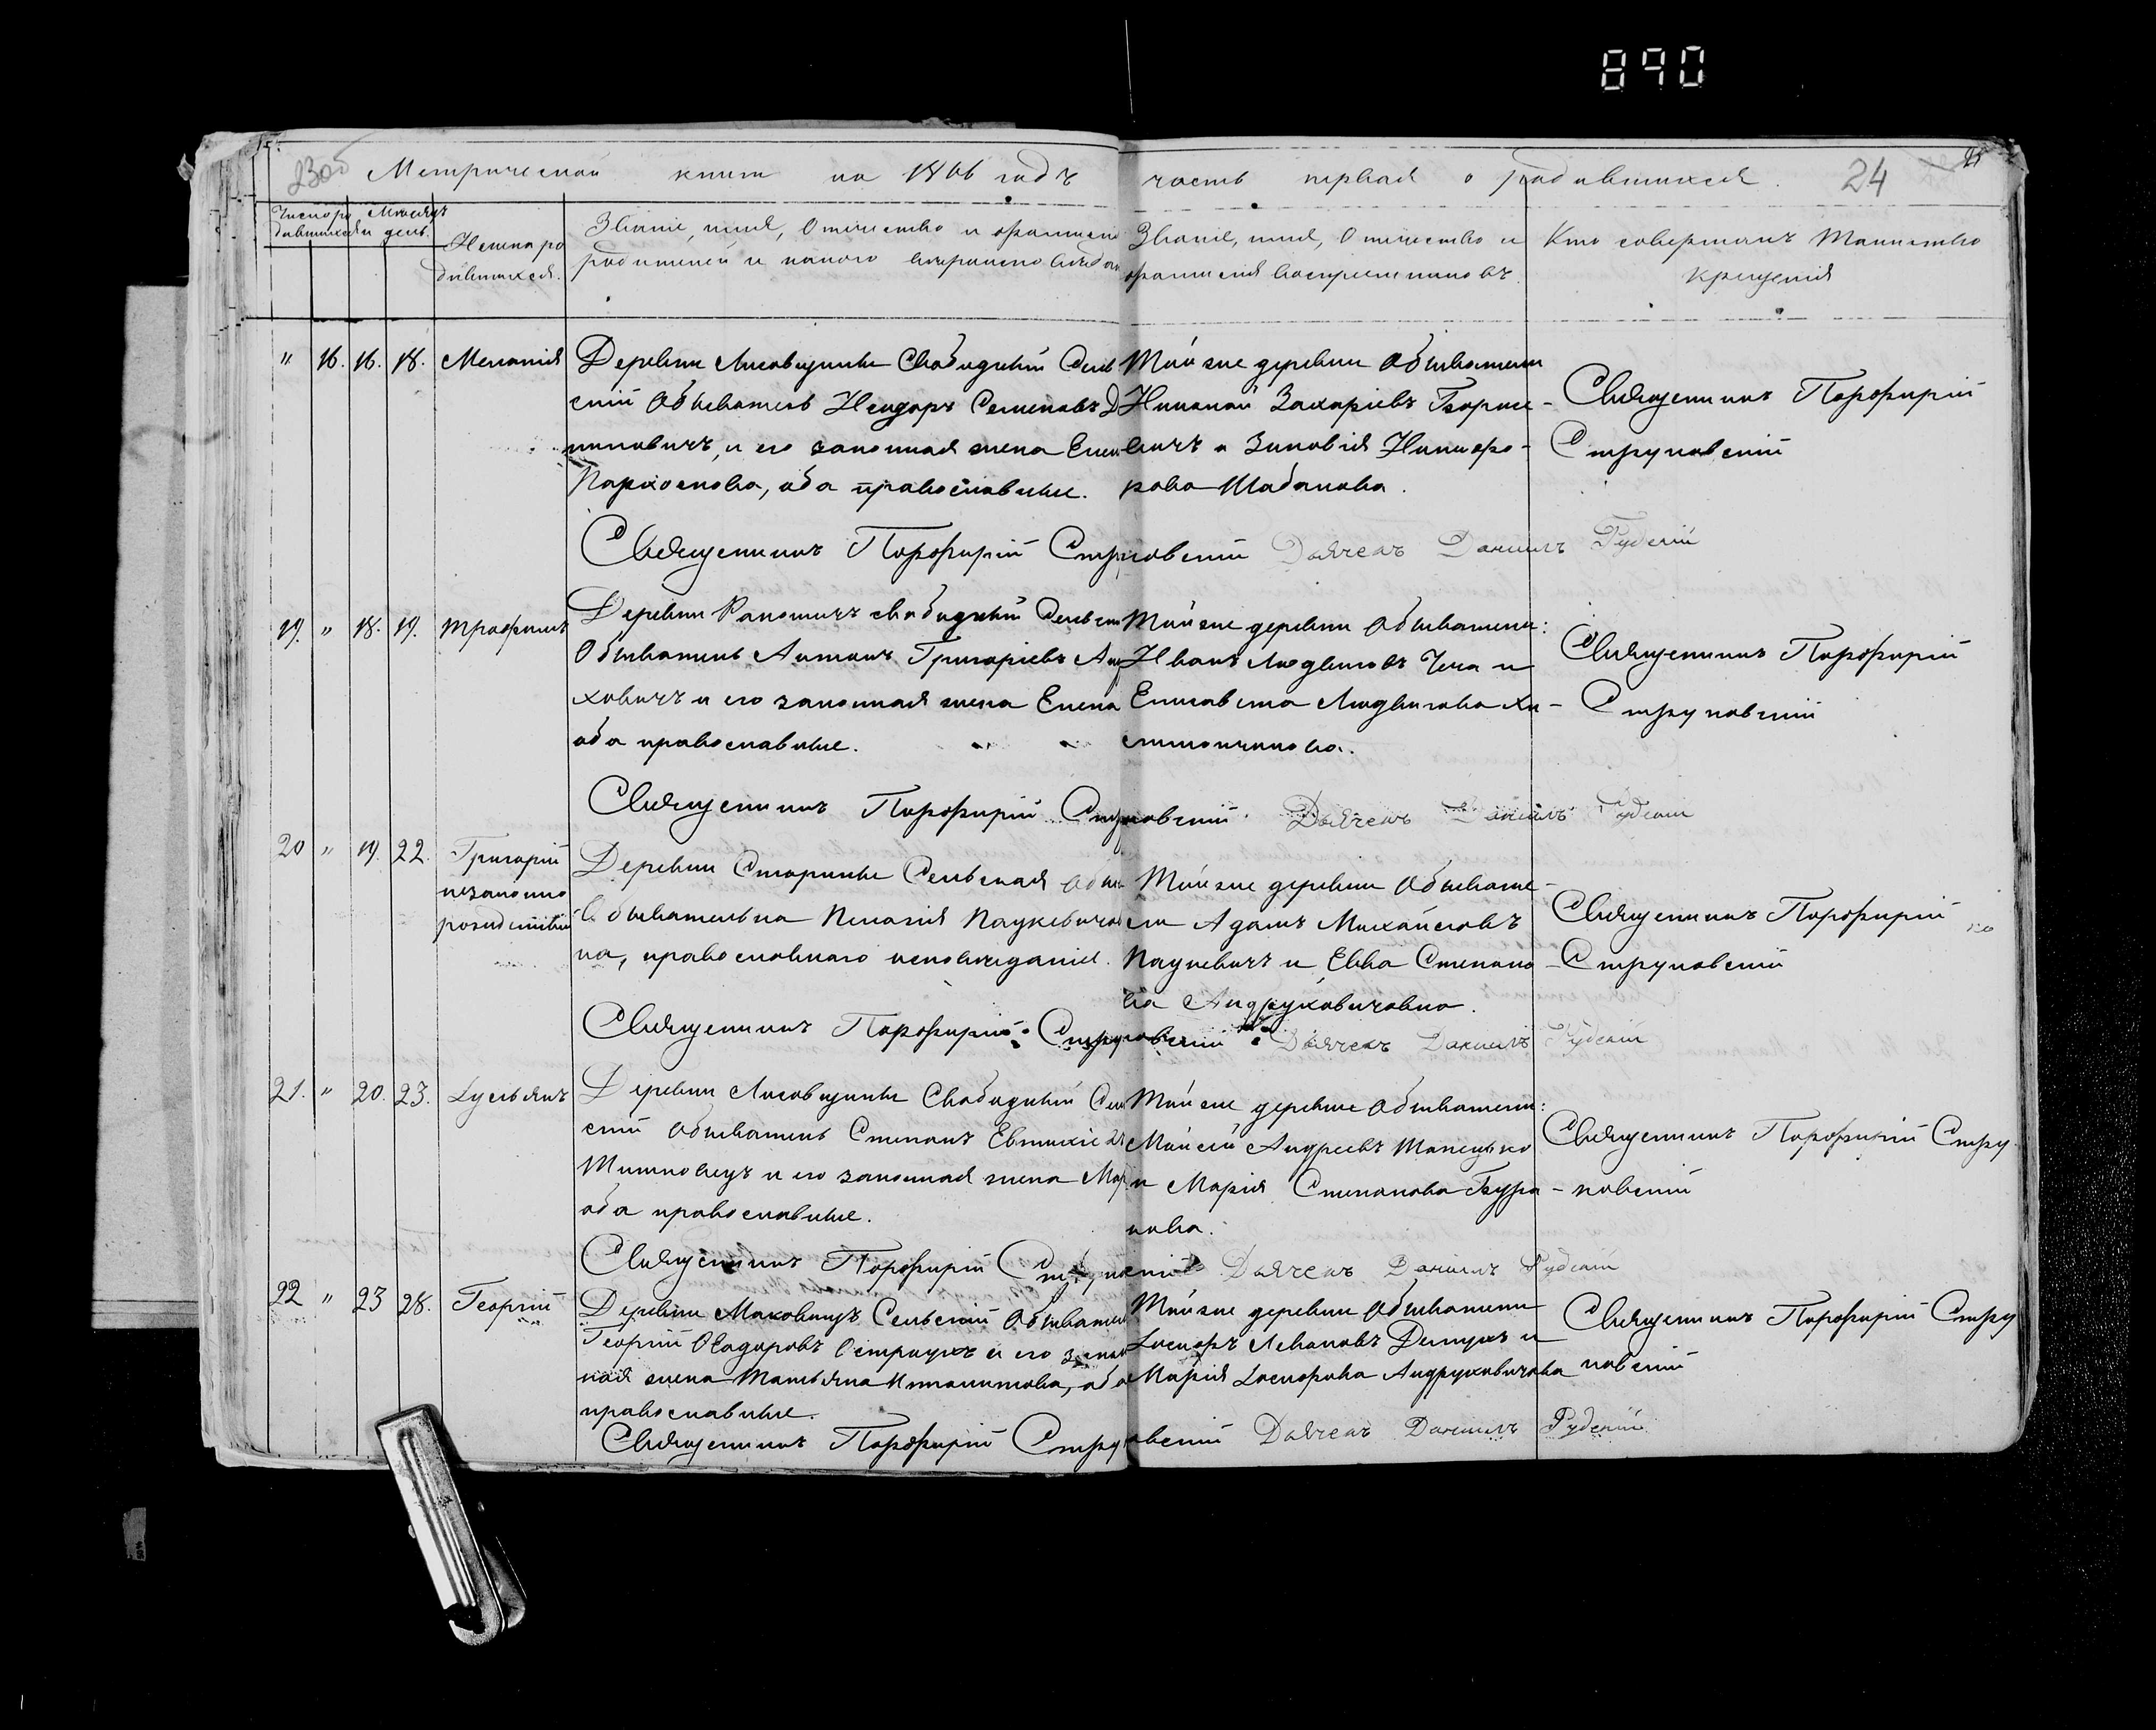 890
23об Метрической книги на 1866 годъ часть первая о родившихся. 24
Число родившихся
Мѣсяцъ и день.
Имена родившихся.
Званіе, имя, Отчество и фамилія
родителей и какого вѣроисповѣдан
Званіе, имя, Отчество и
фамилія воспріемниковъ.
Кто совершалъ Таинство
крещенія
" 16. 16. 18. Меланія
Деревни Лисовщины Свободный Сель
скій Обыватель Исидоръ Семеновъ
и его законная жена Елен
Пархомова, оба православные.
Той же деревни Обыватели
Николай Захаріевъ
и Зиновія Никифо-
рова Шабанова.
Священникъ Порфирій
Струковскій
Священникъ Порфирій Струковскій Дьячекъ Даніилъ Рудскій
19. " 18. 19. Трофимъ
Деревни свободный Сельскі
Обыватель Антонъ Григоріевъ
ховичъ и его законная жена Елена
оба православные.
Той же деревни Обыватели:
Иванъ Людвиговъ и
Елисавета Людвигова
Священникъ Порфирій
Струковскій
Священникъ Порфирій Струковскій Дьячекъ Даніилъ Рудскій
20 " 19. 22. Григорій
незаконно
рожденный
Деревни Старины Сельская
Обывательна Пелагія Пацкевичов
на, православнаго исповѣданія.
Той же деревни Обывате-
ли Адамъ Михайловъ
Пацкевичъ и Евва Степано
ва Андруховичовна.
Священникъ Порфирій
Струковскій
Священникъ Порфирій Струковскій Дьячекъ Даніилъ Рудскій
21. " 20. 23. Іульянъ
Деревни Лисовщины Свободный Сель
скій Обыватель Степанъ Евтихіевъ
и его законная жена Мар
оба православные.
Той же деревни Обыватели:
Моисей Андреевъ
и Марія Степанова
нова.
Священникъ Порфирій Стру
ковскій
Священникъ Порфирій Дьячекъ Даніилъ Рудскій
22 " 23 28. Георгій
Деревни Маковищъ Сельскій Обывател
Георгій Ѳеодоровъ и его закон
ная жена Татьяна Ипполитова, оба
православные.
Той же деревни Обыватели
и
Марія Андруховичовна
Священникъ Порфирій Стру
ковскій
Священникъ Порфирій Струковскій Дьячекъ Даніилъ Рудскій